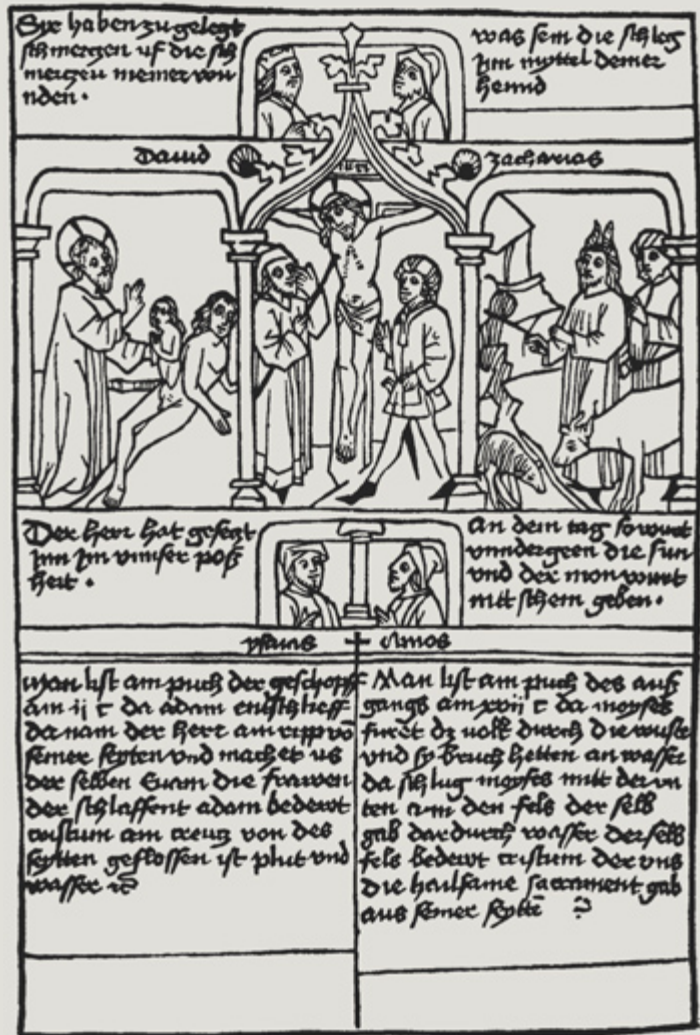 Sye haben zu gelegt
schmerczen uf die sch
merczen meiner wou
nden.
was sein die schleg
Inn myttel deiner
hennd
Dauid
zacharias
Der herr hat geseczt
Inn Im unnser poß
heit.
An dem tag so wirt
unndergeen die sun
und der mon wirt
nitt schein geben.
ysaias
Amos
Man list am puch der geschopff
am ij c da adam entschlieff
da nam der herr am ripp vō
seiner seyten und machet us
der selben Euam die frawen
der schlaffent adam bedewt
cristum am creucz von des
seytten geflossen ist plut und
wasser ꝛc
Man list am puch des auß
gangs am xvij c da moyses
furet dz volk durch die wuste
und sy bruch hetten an wasser
da schlug moyses mitt der ru
ten an den fels der selb
gab dardurch wasser der selb
fels bedewt cristum der uns
die hailsame sacrament gab
aus seiner seyttē ꝛ